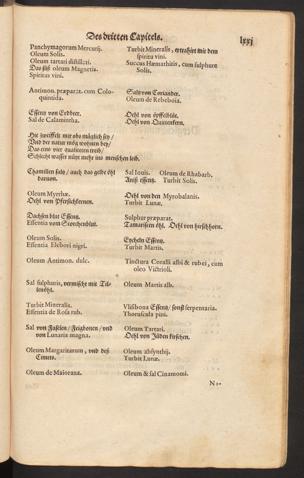 Des dritten Capitels. lxxj
Panchymagorum Mercurij.
Oleum Solis.
Oleum tartari distillati.
Das süß oleum Magnetis.
Spiritus vini.
Turbit Mineralis, extrahirt mit dem
spiritu vini.
Succus Hæmathitis, cum sulphure
Solis.
Antimon. præparat. cum Colo-
quintida.
Saltz von Coriander.
Oleum de Rebeboia.
Essentz von Erdbeer.
Sal de Calamintha.
Oehl von öpffelblüt.
Oehl von Quittenkern.
Hie zweiffelt mir obs müglich sey/
Vnd der natur mög wohnen bey/
Das eins vier qualiteten treib/
Schlecht wasser nützt mehr ins menschen leib.
Chamillen saltz/ auch das gelbe öhl
daruon.
Sal Iouis. Oleum de Rhabarb.
Aniß essentz. Turbit Solis.
Oleum Myrrhæ.
Oehl von Pfersichkernen.
Oehl von den Myrobalanis.
Turbit Lunæ.
Dachsen blut Essentz.
Essentia vom Storchenblut.
Sulphur præparat.
Tamarißken öhl. Oehl von hirschhorn.
Oleum Solis.
Essentia Elebori nigri.
Eycheln Essentz.
Turbit Martis.
Oleum Antimon. dulc.
Tinctura Coralli albi & rubei, cum
oleo Victrioli.
Sal sulphuris, vermischt mit Til-
lenöhl.
Oleum Martis alb.
Turbit Mineralis.
Essentia de Rosa rub.
Vlisbona Essentz/ sonst serpentaria.
Thoruscula pini.
Sal von Fasolen/ Feigbonen/ vnd
von Lunaria magna.
Oleum Tartari.
Oehl von Jüden kirschen.
Oleum Margaritarum, vnd deß
Cimets.
Oleum absynthij.
Turbit Lunæ.
Oleum de Maiorana.
Oleum & sal Cinamomi.